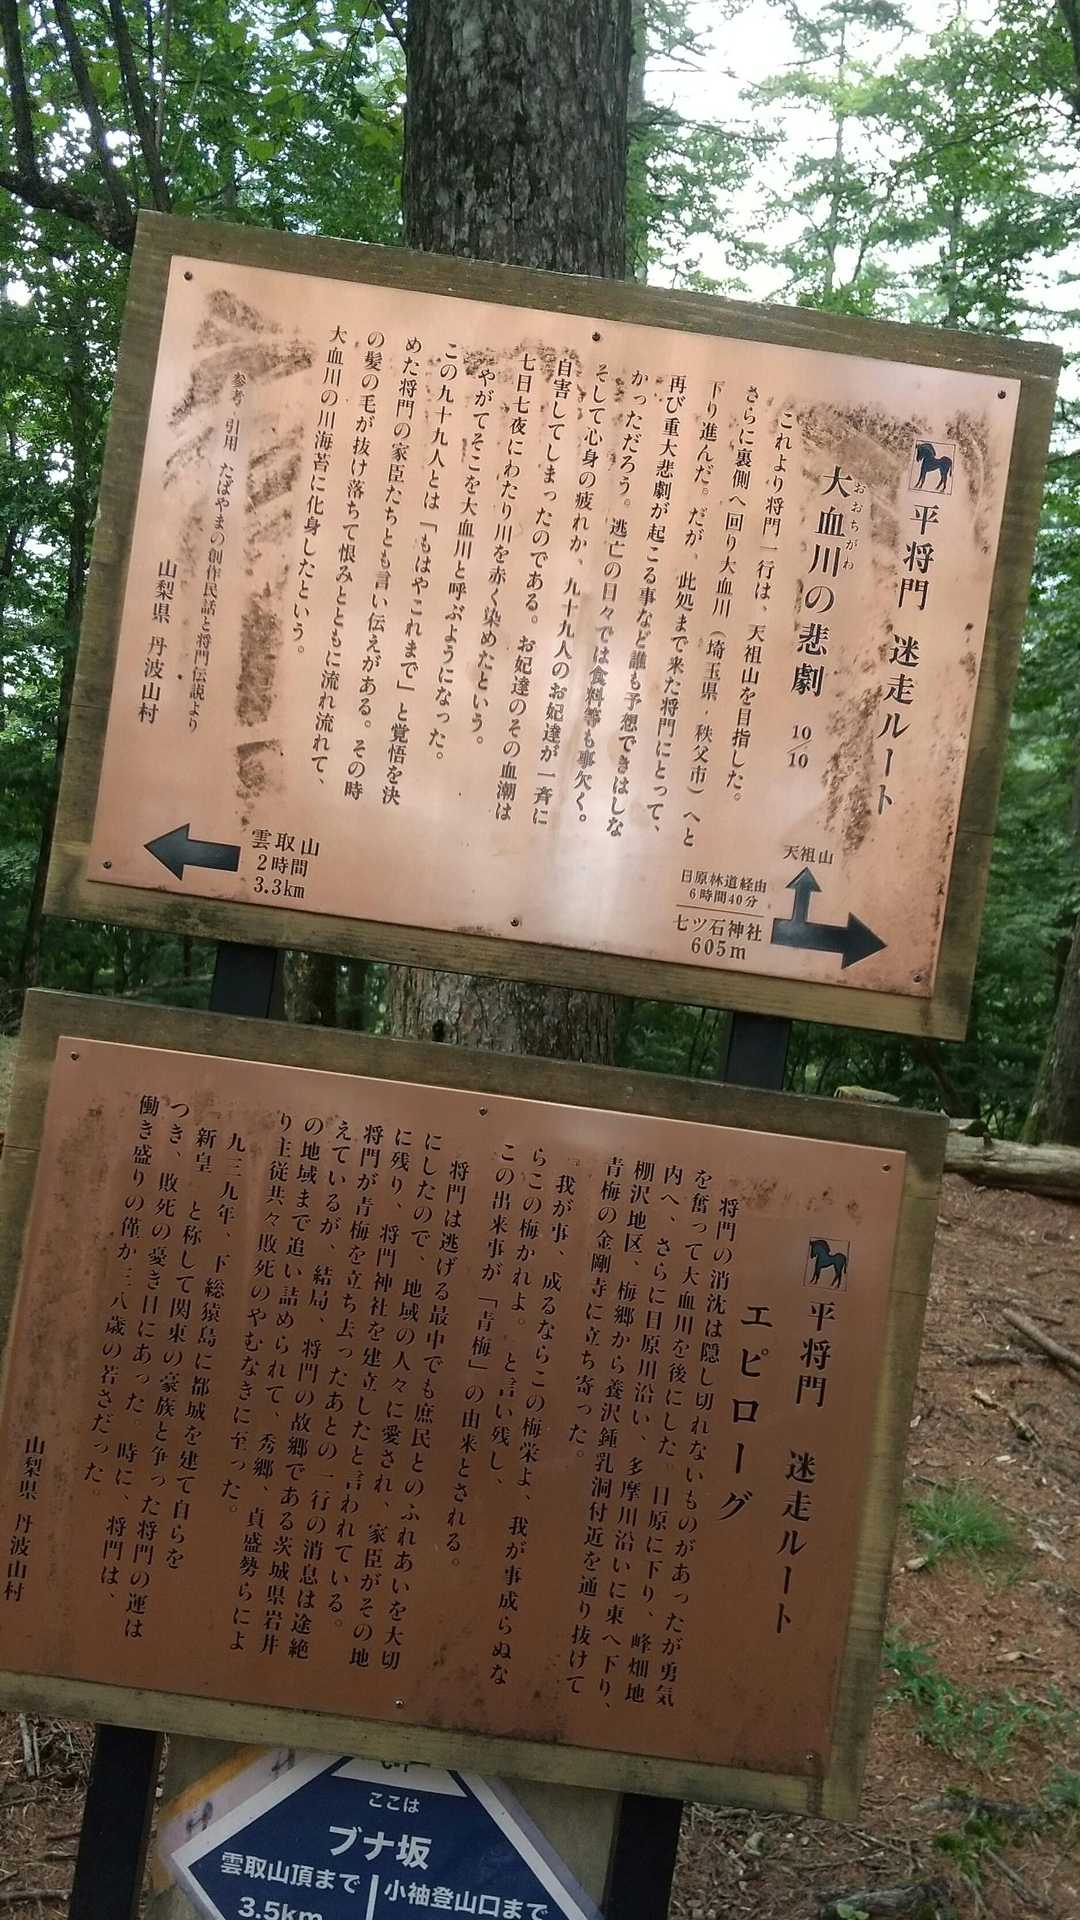 平将門 迷走ルート
大血川の悲劇 10/10
おおちがわ
これより将門一行は、天祖山を目指した。
さらに裏側へ回り大血川（埼玉県 秩父市）へと
下り進んだ。だが、此処まで来た将門にとって、
再び重大悲劇が起こる事など誰も予想できはしな
かっただろう。逃亡の日々では食料等も事欠く。
そして心身の疲れか、九十九人のお妃達が一斉に
自害してしまったのである。お妃達のその血潮は
七日七夜にわたり川を赤く染めたという。
やがてそこを大血川と呼ぶようになった。
この九十九人とは「もはやこれまで」と覚悟を決
めた将門の家臣たちとも言い伝えがある。その時
の髪の毛が抜け落ちて恨みとともに流れ流れて、
大血川の川海苔に化身したという。
参考・引用 たばやまの創作民話と将門伝説より
山梨県 丹波山村
天祖山
日原林道経由
6時間40分
七ツ石神社
605m
雲取山
2時間
3.3km
平将門 迷走ルート
エピローグ
将門の消沈は隠し切れないものがあったが勇気
を奮って大血川を後にした。日原に下り、峰畑地
内へ、さらに日原川沿い、多摩川沿いに東へ下り、
棚沢地区、梅郷から養沢鍾乳洞付近を通り抜けて
青梅の金剛寺に立ち寄った。
「我が事、成るならこの梅栄よ、我が事成らぬな
らこの梅かれよ。」と言い残し、
この出来事が「青梅」の由来とされる。
将門は逃げる最中でも庶民とのふれあいを大切
にしたので、地域の人々に愛され、家臣がその地
に残り、将門神社を建立したと言われている。
将門が青梅を立ち去ったあとの一行の消息は途絶
えているが、結局、将門の故郷である茨城県岩井
の地域まで追い詰められて、秀郷、貞盛勢らによ
り主従共々敗死のやむなきに至った。
九三九年、下総猿島に都城を建て自らを
「新皇」と称して関東の豪族と争った将門の運は
つき、敗死の憂き目にあった。時に、将門は、
働き盛りの僅か三八歳の若さだった
山梨県 丹波山村
ここは
ブナ坂
雲取山頂まで
3.5km
小袖登山口まで